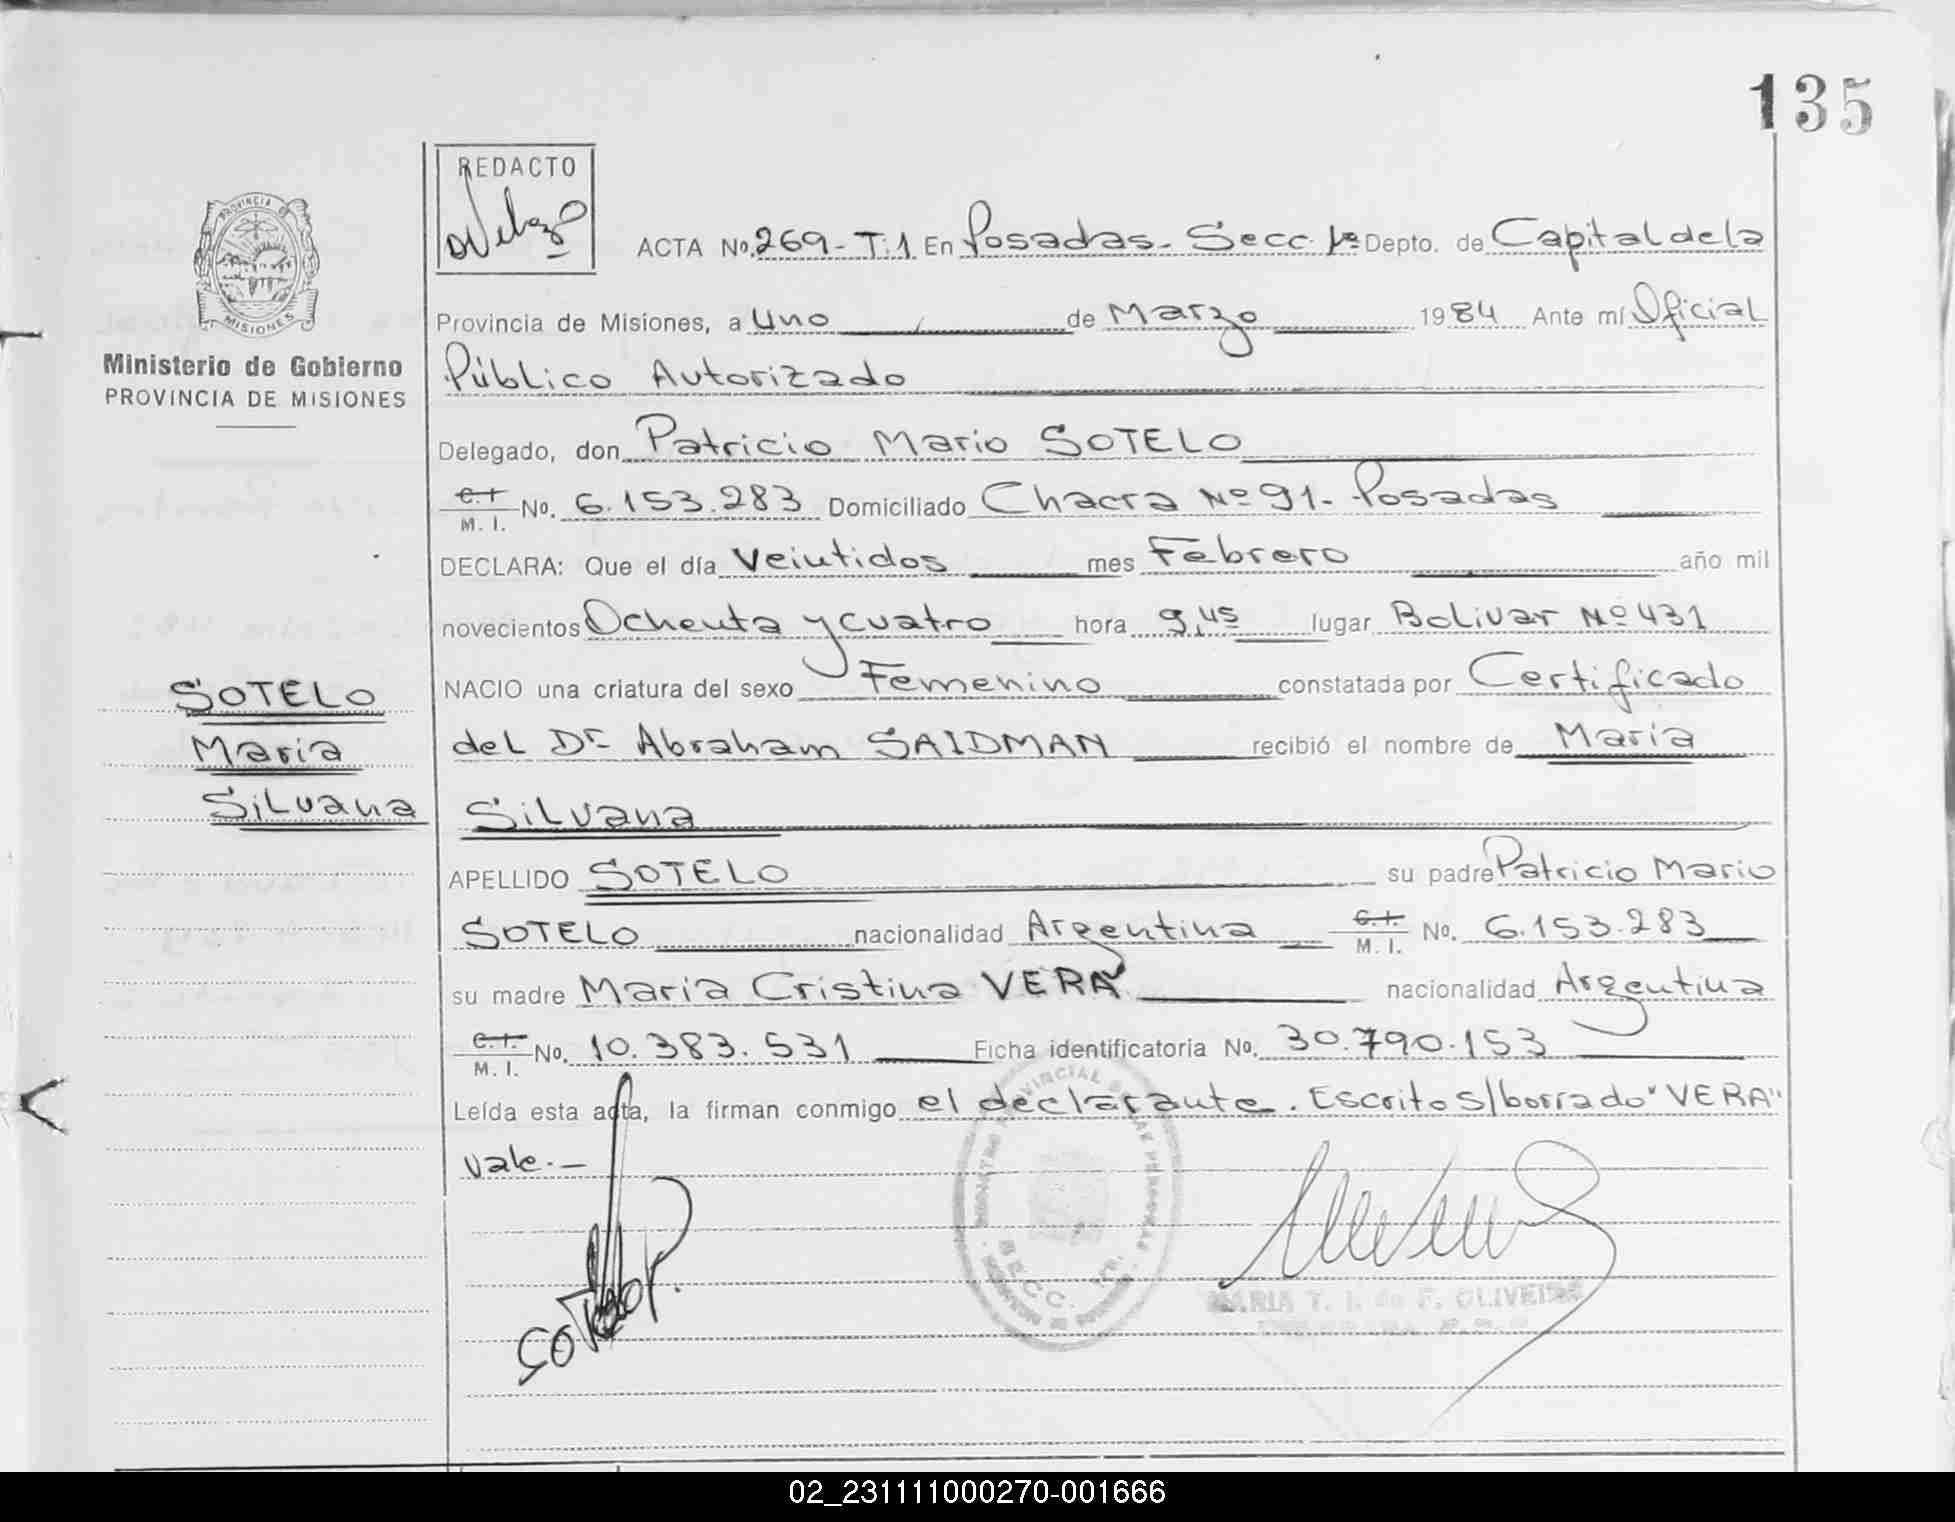 135
REDACTO
PROVINCIA DE
MISIONES
Ministerio de Gobierno
PROVINCIA DE MISIONES
ACTA No. 269 - T: 1 En Posadas - Secc 1ª Depto. de Capital de la
Provincia de Misiones, a Uno de Marzo 1984 Ante mí Oficial
Público Autorizado
Delegado, don Patricio Mario SOTELO
C.I. / M. I. No. 6.153.283 Domiciliado Chacra Nº 91 - Posadas
DECLARA: Que el día Veintidos mes Febrero año mil
novecientos Ochenta y cuatro hora 9,45 lugar Bolivar Nº 431
NACIO una criatura del sexo Femenino constatada por Certificado
del Dr Abraham SAIDMAN recibió el nombre de Maria
Silvana
SOTELO
Maria
Silvana
APELLIDO SOTELO su padre Patricio Mario
SOTELO nacionalidad Argentina C.I. / M. I. No. 6.153.283
su madre Maria Cristina VERA nacionalidad Argentina
C.I. / M. I. No. 10.383.531 Ficha identificatoria No. 30.790.153
Leída esta acta, la firman conmigo el declarante. Escrito s/borrado "VERA"
vale.-
SECC. 1ra.
MARIA T. I. de F. OLIVEIRA
02_231111000270-001666